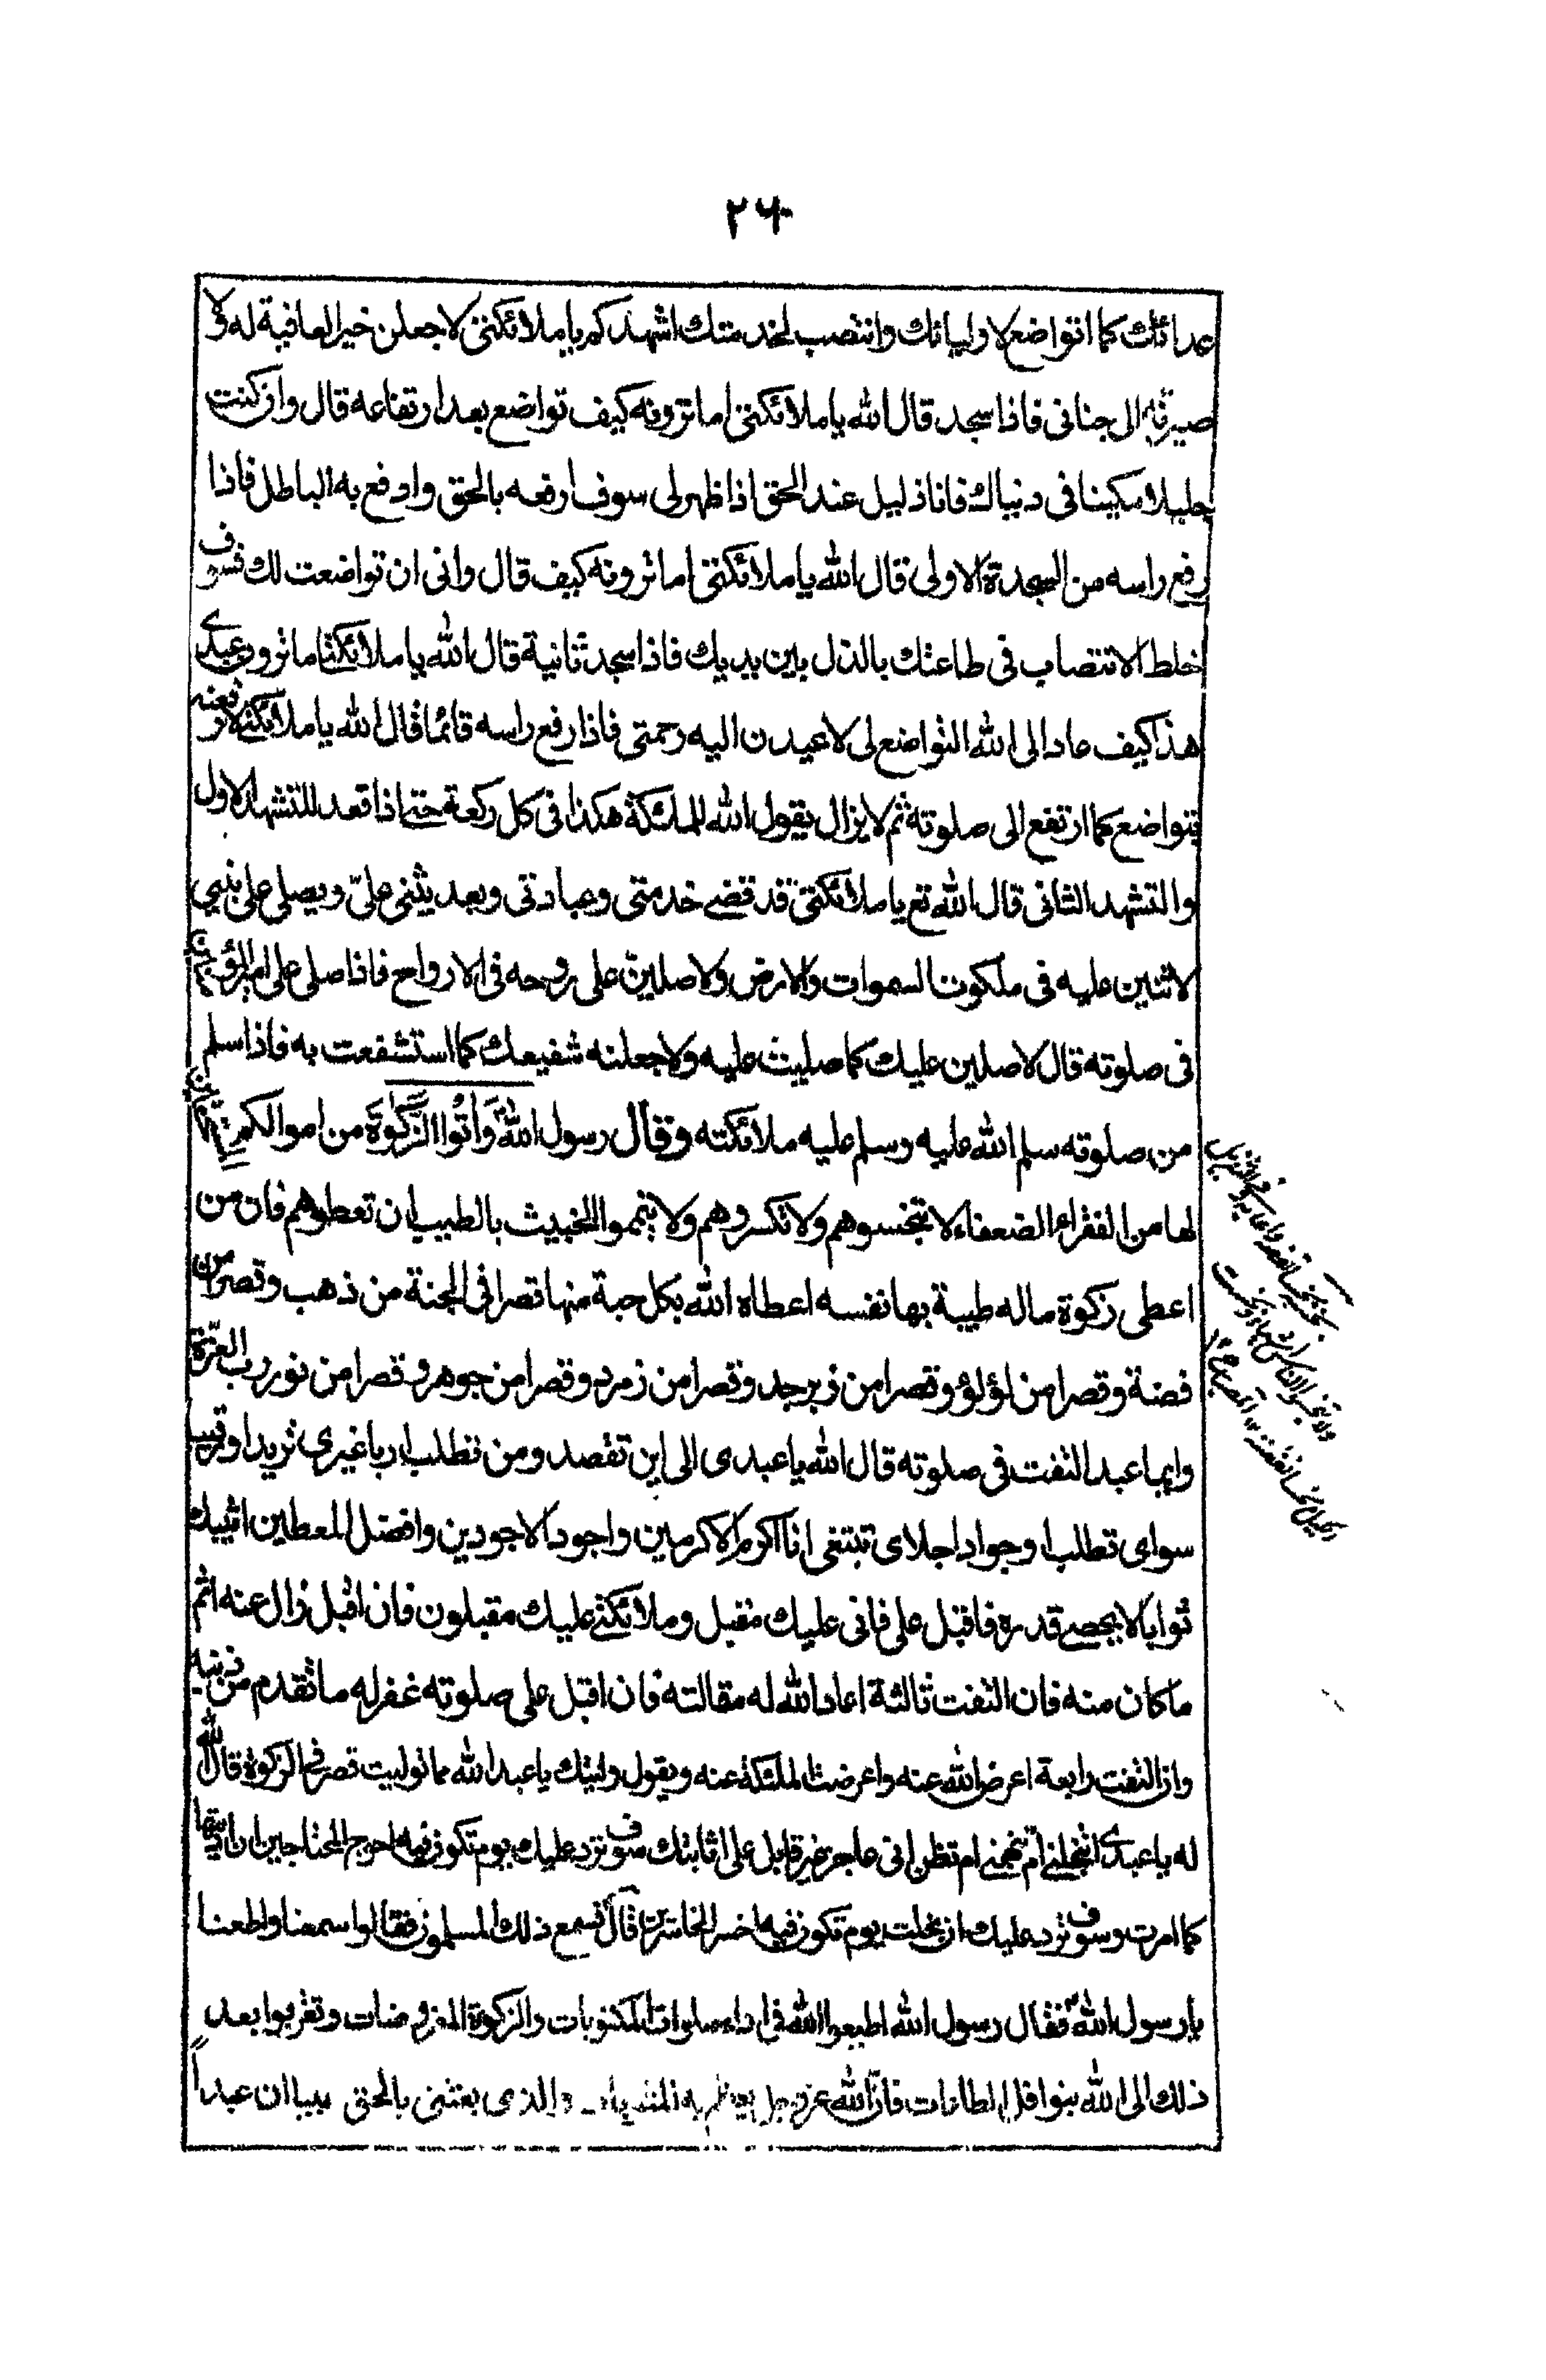 ۲۶۰
عدائك كما اتواضع لاوليائك وانتصب لخدمتك اشهدكم يا ملائكتى لاجعلن خير العاقبة له ولا
صيرنه الى جنانى فاذا سجد قال الله يا ملائكتى اما ترونه كيف تواضع بعد ارتفاعه قال وان كنت
جليلا مكينا فى دنياك فانا ذليل عند الحق اذا ظهر لى سوف ارفعه بالحق وادفع به الباطل فاذا
رفع راسه من السجدة الاولى قال الله يا ملائكتى اما ترونه كيف قال وانى ان تواضعت لك فسوف
اخلط الانتصاب فى طاعتك بالذل بين يديك فاذا سجد ثانية قال الله يا ملائكتى اما ترون عبدى
هذا كيف عاد الى الله التواضع لى لاعيدن اليه رحمتى فاذا رفع راسه قائما قال الله يا ملائكتى لارفعنه
بتواضع كما ارتفع الى صلوته ثم لا يزال يقول الله للملئكة هكذا فى كل ركعة حتى اذا قعد للتشهد الاول
والتشهد الثانى قال الله تع يا ملائكتى قد قضى خدمتى وعبادتى وبعد يثنى علىّ ويصلى على نبيى
لاثنين عليه فى ملكوت السموات والارض ولاصلينّ على روحه فى الارواح فاذا صلى على امير المؤمنين
فى صلوته قال لاصلين عليك كما صليت عليه ولاجعلنه شفيعك كما استشفعت به فاذا سلم
من صلوته سلم الله عليه وسلم عليه ملائكته وقال رسول الله واتوا الزكوة من اموالكم المستحقين
لها من الفقراء الضعفاء لا تبخسوهم ولا تكسروهم ولا تيمموا الخبيث بالطيب ان تعطوهم فان من
اعطى زكوة ماله طيبة بها نفسه اعطاه الله بكل حبة منها قصرا فى الجنة من ذهب وقصرا من
فضة وقصرا من لؤلؤ وقصرا من زبرجد وقصرا من زمرد وقصرا من جوهر وقصرا من نور رب العزّة
وايما عبد التفت فى صلوته قال الله يا عبدى الى اين تقصد ومن تطلب اربا غيرى تريد او رقيبا
سواى تطلب او جوادا خلاى تبتغى انا اكرم الاكرمين واجود الاجودين وافضل المعطين اثيبك
ثوابا لا يحصى قدره فاقبل على فانى عليك مقبل وملائكتى عليك مقبلون فان اقبل زال عنه اثم
ما كان منه فان التفت ثالثة اعاد الله له مقالته فان اقبل على صلوته غفر له ما تقدم من ذنبه
وان التفت رابعة اعرض الله عنه واعرضت الملئكة عنه ويقول وليتك يا عبد الله ما توليت قصر فى الزكوة قال الله
له يا عبدى اتبخلنى ام تتهمنى ام تظن انى عاجز غير قابل على اثابتك سوف ترد عليك يوم تكون فيه احوج المحتاجين ان اديتها
كما امرت وسوف ترد عليك ان بخلت يوم تكون فيه اخسر الخاسرين قال فسمع ذلك المسلمون فقالوا سمعنا واطعنا
يا رسول الله فقال رسول الله اطيعوا الله فى اداء صلوات المكتوبات والزكوة المفروضات وتقربوا بعد
ذلك الى الله بنوافل الطاعات فان الله عز وجل يعظم به والذى بعثنى بالحق نبيا ان عبداً